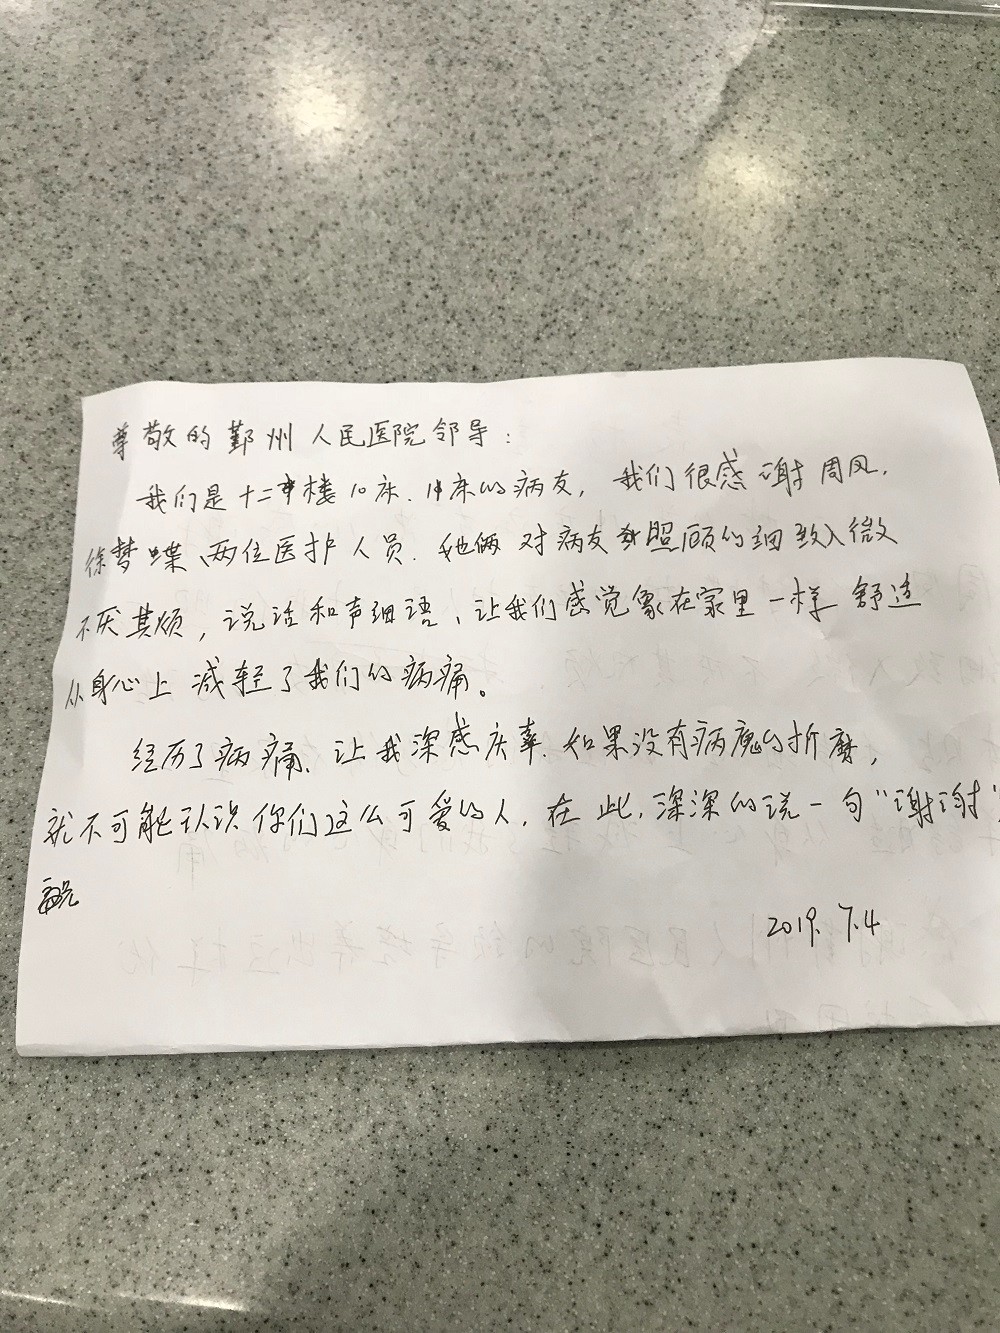 尊敬的鄞州人民医院邻导：
我们是十二楼10床、11床的病友，我们很感谢周风、
徐梦蝶、两位医护人员．她俩对病友照顾的细致入微
不厌其烦，说话和声细语、让我们感觉象在家里一样舒适
从身心上减轻了我们的病痛。
经历了病痛、让我深感庆幸．如果没有病魔的折磨，
就不可能认识你们这么可爱的人．在此，深深的说一句“谢谢”
2019.7.4